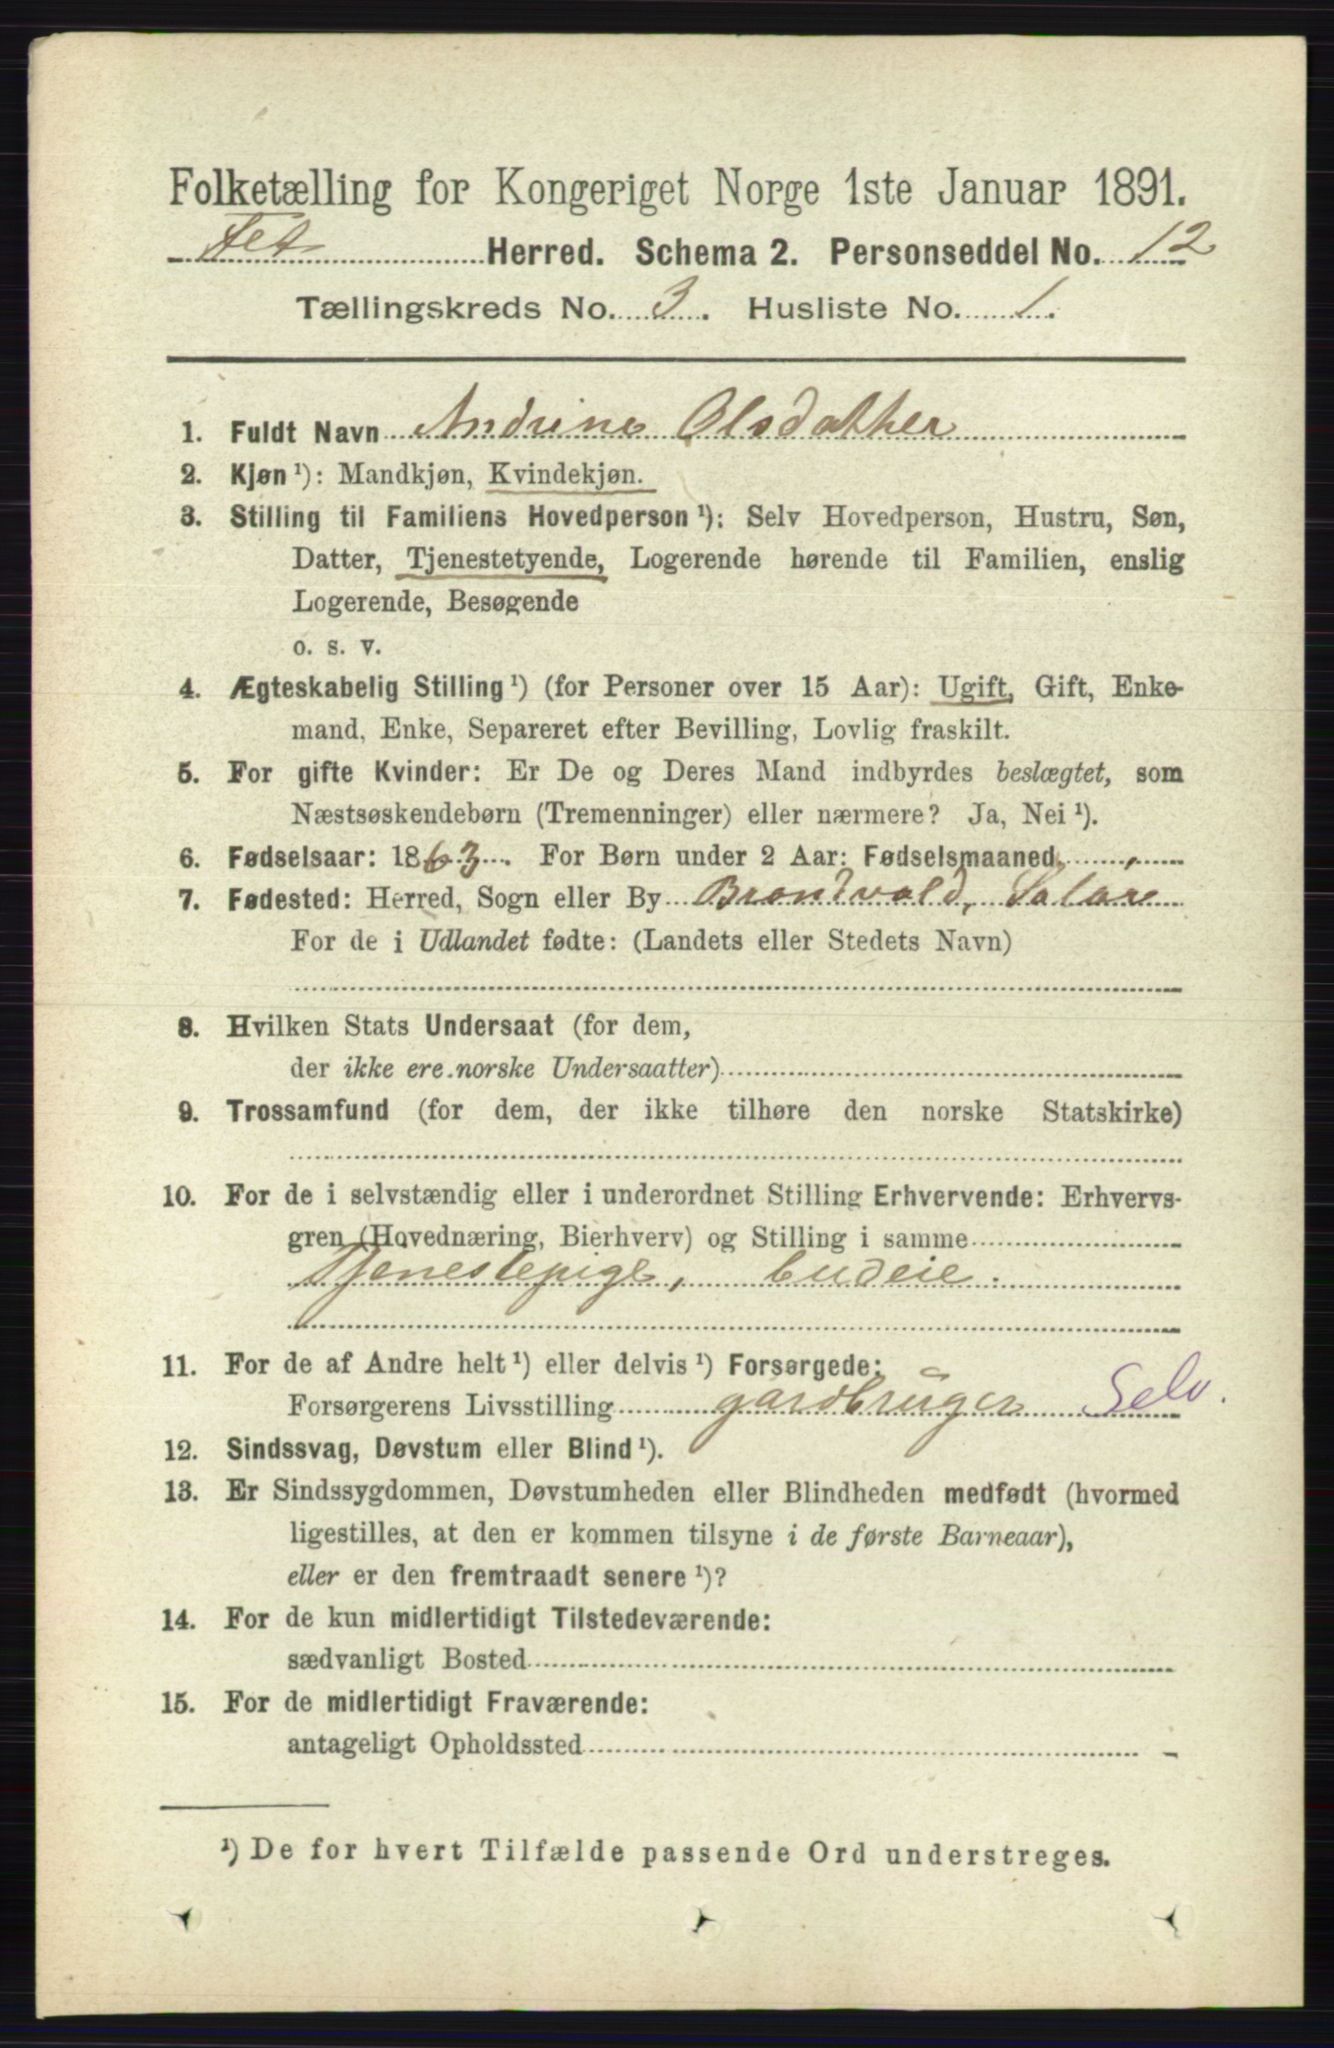 Folketælling for Kongeriget Norge 1ste Januar 1891.
Fet Herred. Schema 2. Personseddel No. 12
Tællingskreds No. 3. Husliste No. 1.
1. Fuldt Navn Andrine Olsdatter
2. Kjøn ¹): Mandkjøn, Kvindekjøn.
3. Stilling til Familiens Hovedperson ¹): Selv Hovedperson, Hustru, Søn,
Datter, Tjenestetyende, Logerende hørende til Familien, enslig
Logerende, Besøgende
o. s. v.
4. Ægteskabelig Stilling ¹) (for Personer over 15 Aar): Ugift, Gift, Enke-
mand, Enke, Separeret efter Bevilling, Lovlig fraskilt.
5. For gifte Kvinder: Er De og Deres Mand indbyrdes beslægtet, som
Næstsøskendebørn (Tremenninger) eller nærmere? Ja, Nei ¹).
6. Fødselsaar: 1863. For Børn under 2 Aar: Fødselsmaaned
7. Fødested: Herred, Sogn eller By Brandvold, Solør
For de i Udlandet fødte: (Landets eller Stedets Navn)
8. Hvilken Stats Undersaat (for dem,
der ikke ere norske Undersaatter)
9. Trossamfund (for dem, der ikke tilhøre den norske Statskirke)
10. For de i selvstændig eller i underordnet Stilling Erhvervende: Erhvervs-
gren (Hovednæring, Bierhverv) og Stilling i samme
Tjenestepige, budeie.
11. For de af Andre helt ¹) eller delvis ¹) Forsørgede:
Forsørgerens Livsstilling gardbruger Selv.
12. Sindssvag, Døvstum eller Blind ¹).
13. Er Sindssygdommen, Døvstumheden eller Blindheden medfødt (hvormed
ligestilles, at den er kommen tilsyne i de første Barneaar),
eller er den fremtraadt senere ¹)?
14. For de kun midlertidigt Tilstedeværende:
sædvanligt Bosted
15. For de midlertidigt Fraværende:
antageligt Opholdssted
¹) De for hvert Tilfælde passende Ord understreges.